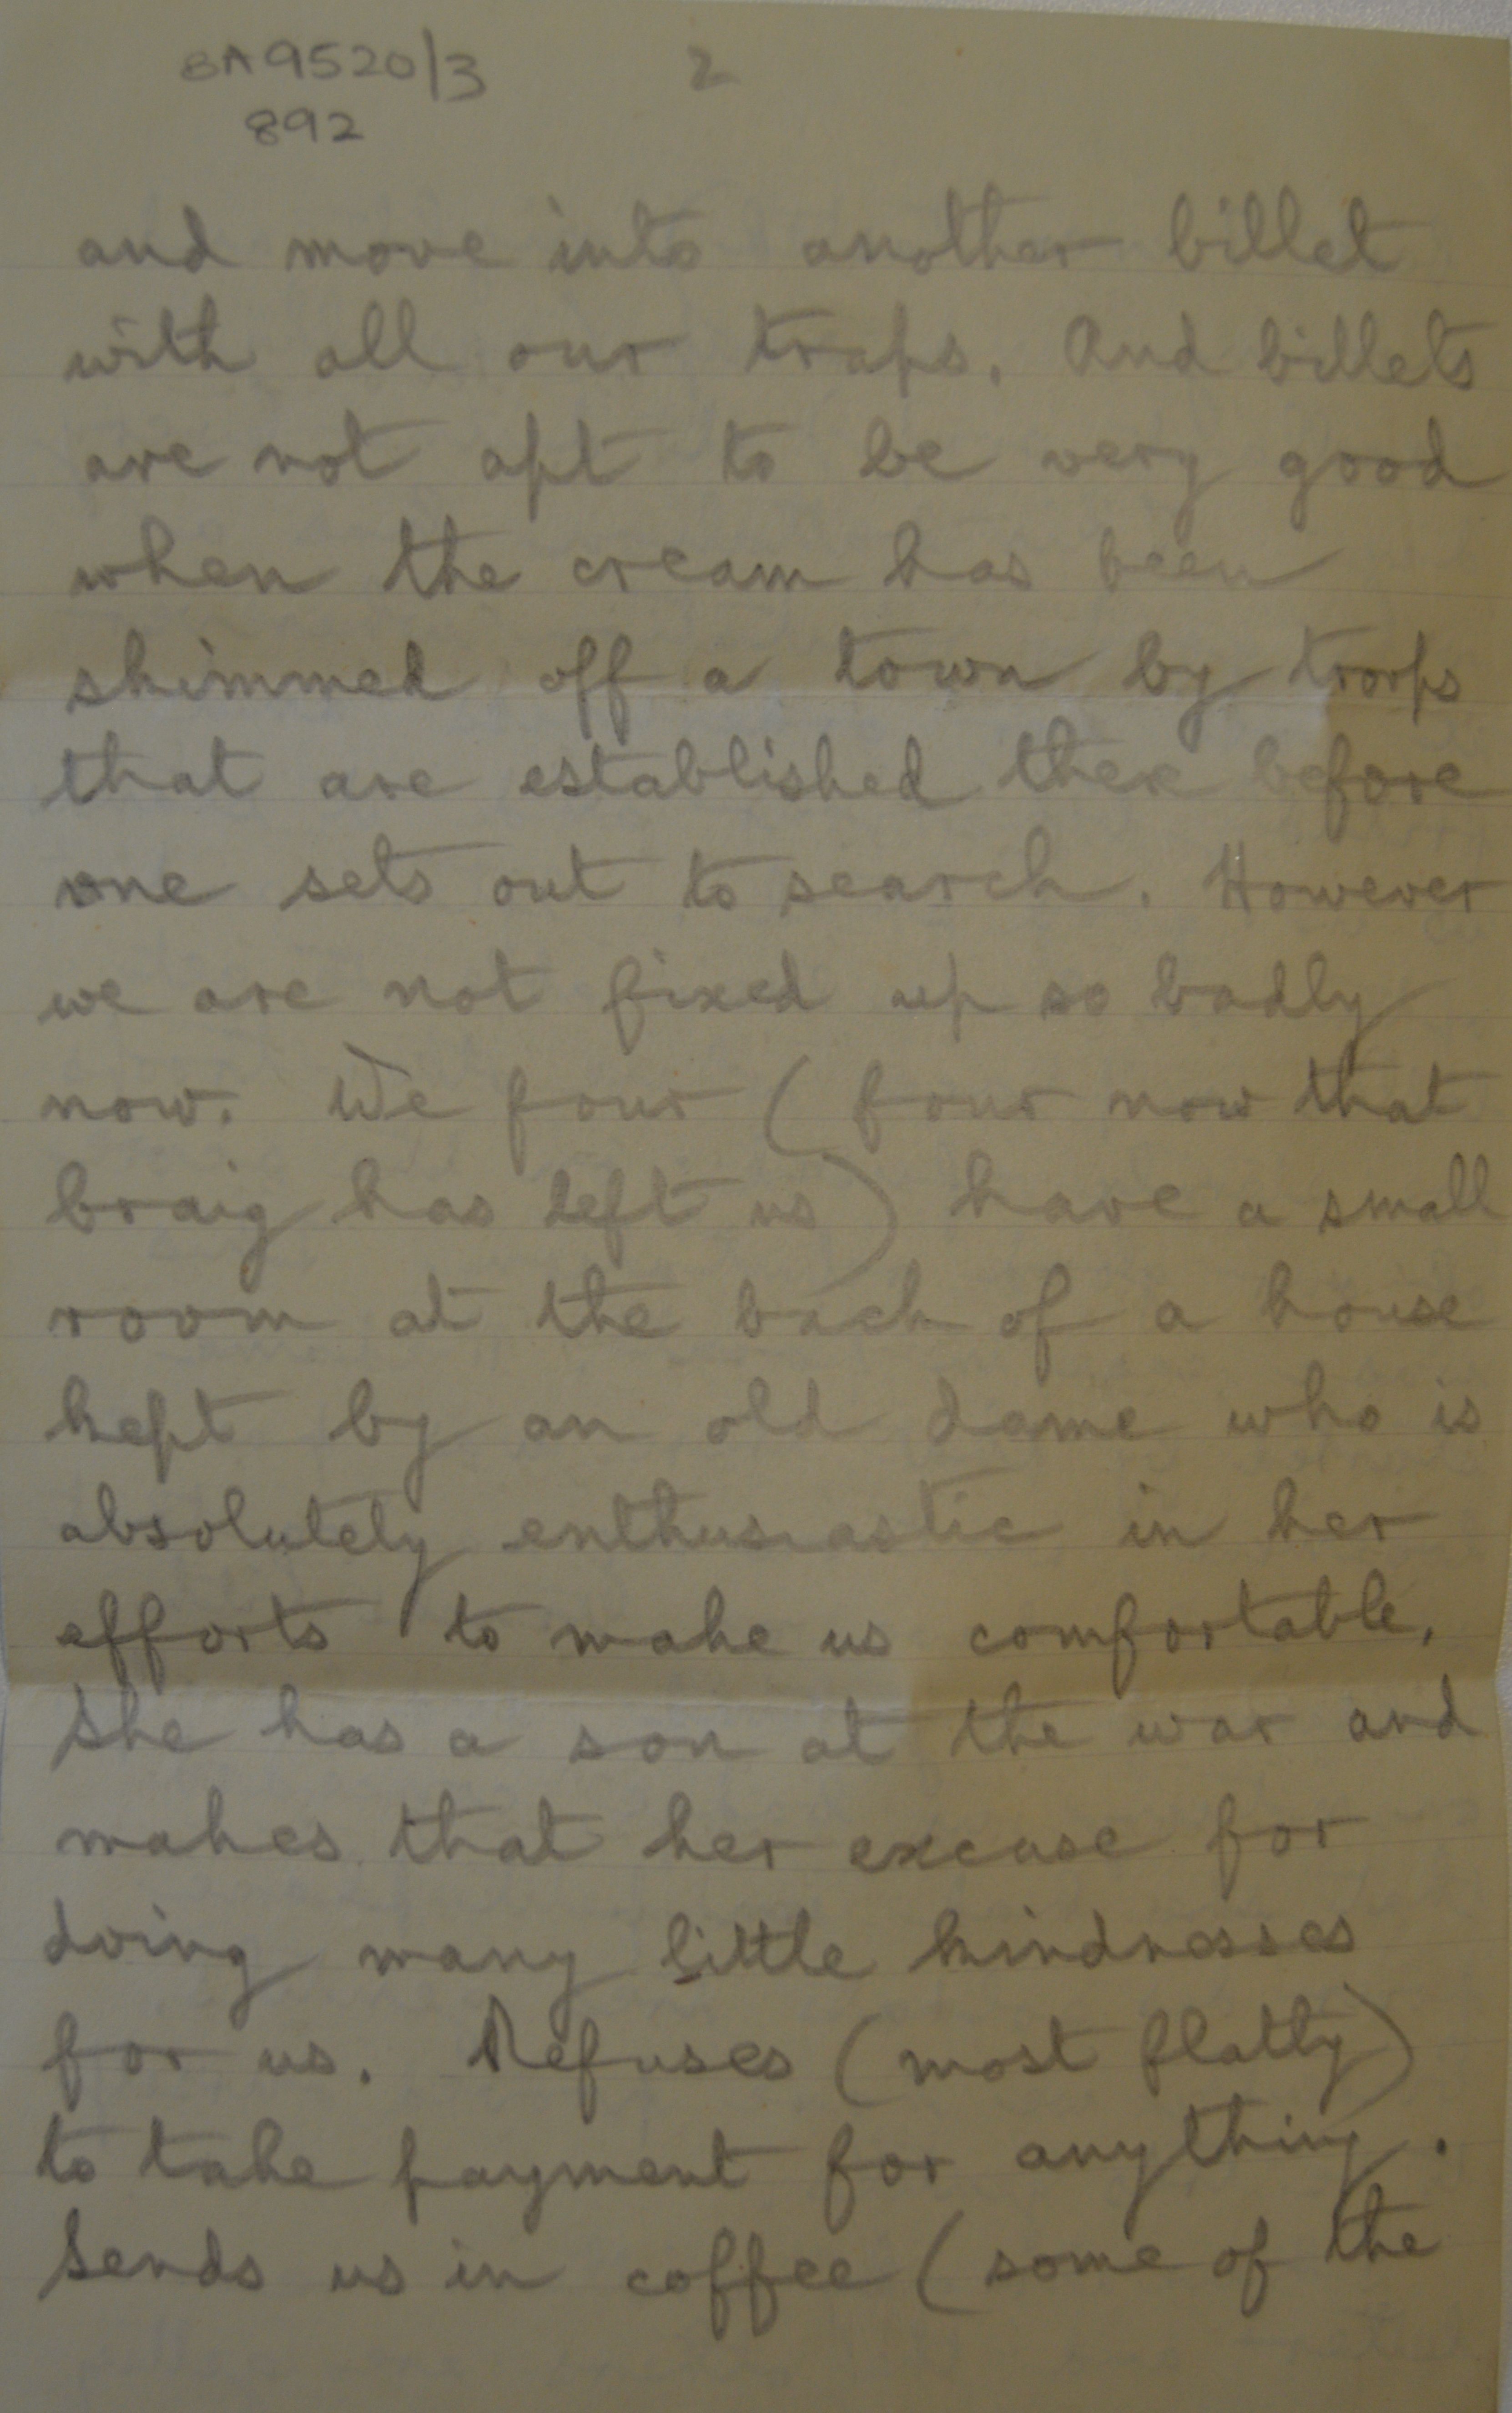 BA9520/3 2
892
and move into another billet
with all our traps. And billets
are not apt to be very good
when the cream has been
skimmed off a town by troops
that are established there before
one sets out to search. However
we are not fixed up so badly
now. We four (four now that
Craig has left us) have a small
room at the back of a house
kept by an old dame who is
absolutely enthusiastic in her
efforts to make us comfortable.
She has a son at the war and
makes that her excuse for
doing many little kindnesses
for us. Refuses (most flatly)
to take payment for anything.
Sends us in coffee (some of the